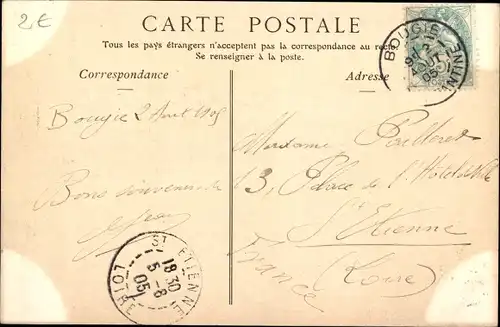 2€
CARTE POSTALE
Tous les pays étrangers n'acceptent pas la correspondance au recto
Se renseigner à la poste.
Correspondance
Adresse
BOUGIE
Bougie 2 Aout 1905
Bons souvenirs
Jean
Madame
13, Place de l'Hotel de Ville
St Etienne
(Loire)
France
ST ETIENNE
18 30
5-8
05
LOIRE